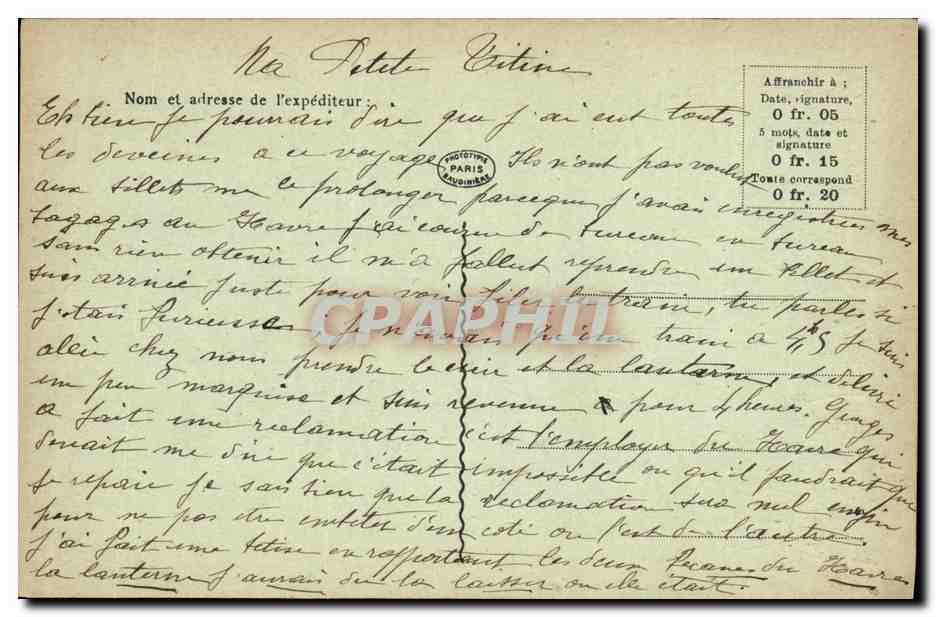 Ma Petite Titine
Nom et adresse de l'expéditeur :
Affranchir à :
Date, signature,
0 fr. 05
5 mots, date et
signature
0 fr. 15
Toute correspond
0 fr. 20
Eh bien je pourrais dire que j'ai eut toutes
les deveines a ce voyage Ils n'ont pas voulut
PHOTOTYPIE
PARIS
BAUDINIÈRE
aux billets me le prolonger parceque j'avais enregistrée mes
bagages au Havre j'ai couru de bureau en bureau
sans rien obtenir il m'a fallut reprendre un billet et
suis arrivée juste pour voir filer le train, tu parles si
j'étais furieuse je n'avais qu'un train a 4h5 je suis
allée chez nous prendre le cuir et la lanterne, et délivré
un peu marquise et suis revenue pour 4 heures. Georges
a fait une reclamation c'est l'employer du Havre qui
devait me dire que c'était impossible ou qu'il faudrait que
je repaie je sais bien que la reclamation sera nul enfin
pour ne pas etre embêter d'un coté on l'est de l'autre.
j'ai fait une betise en rapportant les deux du Havre
la lanterne j'aurais du la laisser ou elle était.
CPAPHIL